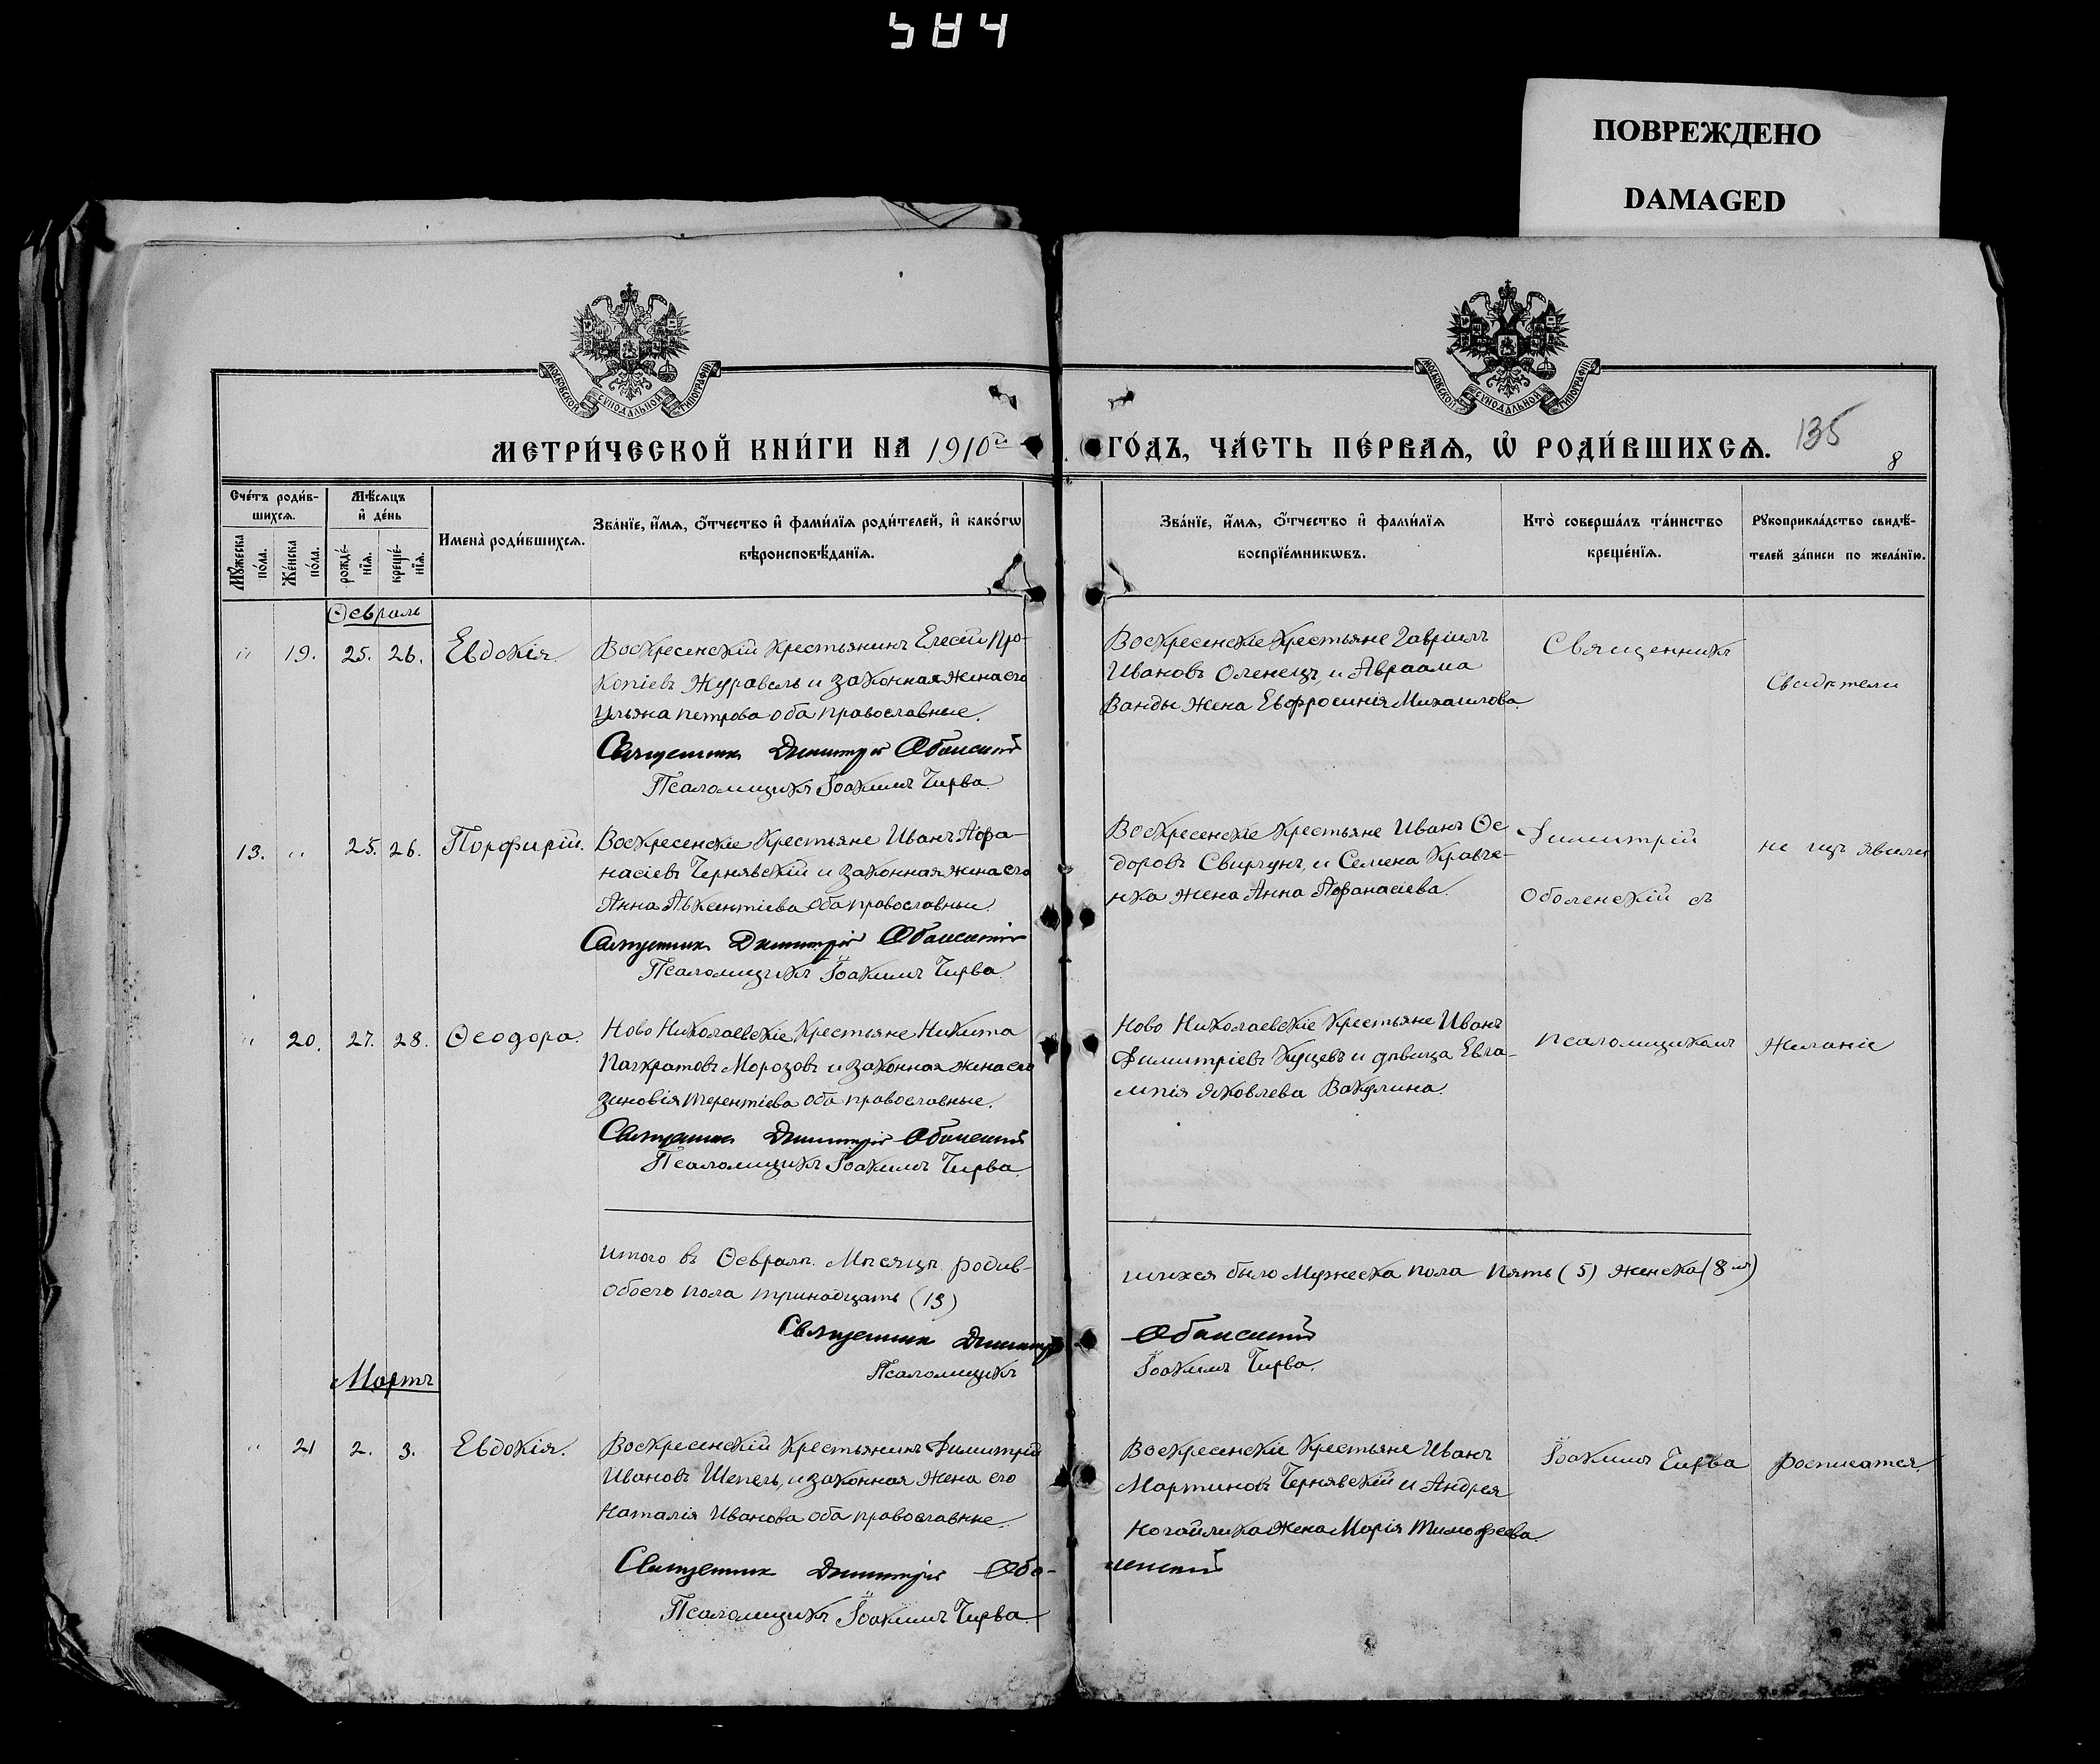 584
ПОВРЕЖДЕНО
DAMAGED
МОСКОВСКОЙ СУНОДАЛЬНОЙ ТИПОГРАФІИ
МОСКОВСКОЙ СУНОДАЛЬНОЙ ТИПОГРАФІИ
МЕТРИ́ЧЕСКОЙ КНИ́ГИ НА 1910й ГО́ДЪ, ЧА́СТЬ ПЕ́РВАѦ, Ѽ РОДИ́ВШИХСѦ.
135
8
Сче́тъ роди́в-
шихсѧ.
Мꙋ́жеска по́ла.
Же́нска по́ла.
Мѣ́сѧцъ
и҆ де́нь
рожде́-
нїѧ.
креще́-
нїѧ.
Имена̀ роди́вшихсѧ.
Зва́нїе, и҆́мѧ, ѻ҆́тчество и҆ фами́лїѧ роди́телей, и҆ како́гѡ
вѣроисповѣ́данїѧ.
Зва́нїе, и҆́мѧ, ѻ҆́тчество и҆ фами́лїѧ
воспрїе́мникѡвъ.
Кто̀ соверша́лъ та́инство
креще́нїѧ.
Рꙋкоприкла́дство свидѣ́-
телей за́писи по жела́нїю.
Ѳевраль
" 19. 25. 26. Евдокія.
Воскресенскій крестьянинъ Елесей Про-
копіевъ Журавель и законная жена его
Ульяна Петрова оба православные.
Священникъ Димитрій Оболенскій
Псаломщикъ Іоакимъ Чирва.
Воскресенскіе крестьяне Гавріилъ
Ивановъ Оленецъ, и Авраама
Ванды жена Евфросинія Михаилова.
Священникъ
Свидѣтели
13. " 25. 26. Порфирій.
Воскресенскіе крестьяне Иванъ Афа-
насіевъ Чернявскій и законная жена его
Анна Авксентіева оба православные.
Священникъ Димитрій Оболенскій
Псаломщикъ Іоакимъ Чирва.
Воскресенскіе крестьяне Иванъ Ѳе
доровъ Свиргунъ, и Семена Кравче-
нка жена Анна Афанасіева.
Димитрій
Оболенскій съ
не изъявили
" 20. 27. 28. Ѳеодора.
Ново Николаевскіе крестьяне Никита
Панкратовъ Морозовъ и законная жена его
Зиновія Терентіева оба православные.
Священникъ Димитрій Оболенскій
Псаломщикъ Іоакимъ Чирва.
Ново Николаевскіе крестьяне Иванъ
Димитріевъ Куцевъ и дѣвица Евла-
мпія Яковлева Вакулина.
псаломщикомъ
желаніе
Итого въ Ѳевралѣ Мѣсяцѣ родив-
шихся было Мужеска пола пять (5) женска (8мь)
обоего пола тринадцать (13)
Священникъ Димитрій Оболенскій
Псаломщикъ Іоакимъ Чирва.
Мартъ
" 21 2. 3. Евдокія.
Воскресенскій крестьянинъ Димитрій
Ивановъ Шепель, и законная жена его
Наталія Иванова оба православные.
Священникъ Димитрій Обо-
ленскій
Псаломщикъ Іоакимъ Чирва.
Воскресенскіе крестьяне Иванъ
Мартиновъ Чернявскій и Андрея
Ногайлика жена Марія Тимофеева.
Іоакимъ Чирва
росписатся.